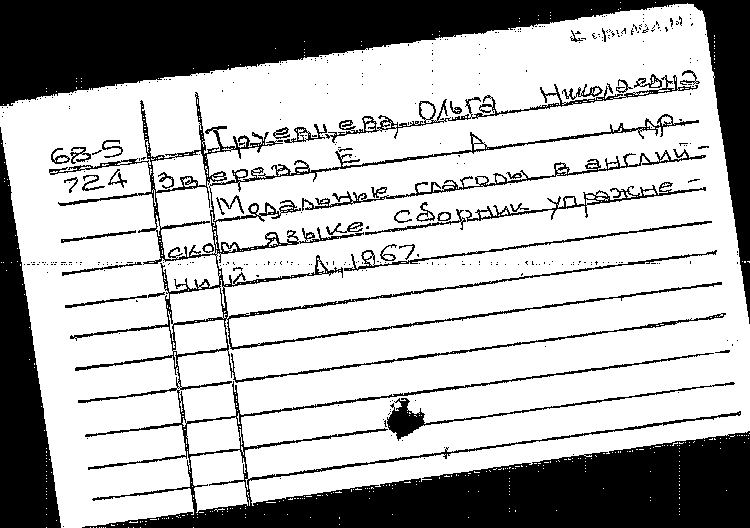 68-5
724
Труевцева, Ольга Николаевна
Зверева, Е А и др.
Модальные глаголы в англий-
ском языке. Сборник упражне-
ний. Л., 1967.